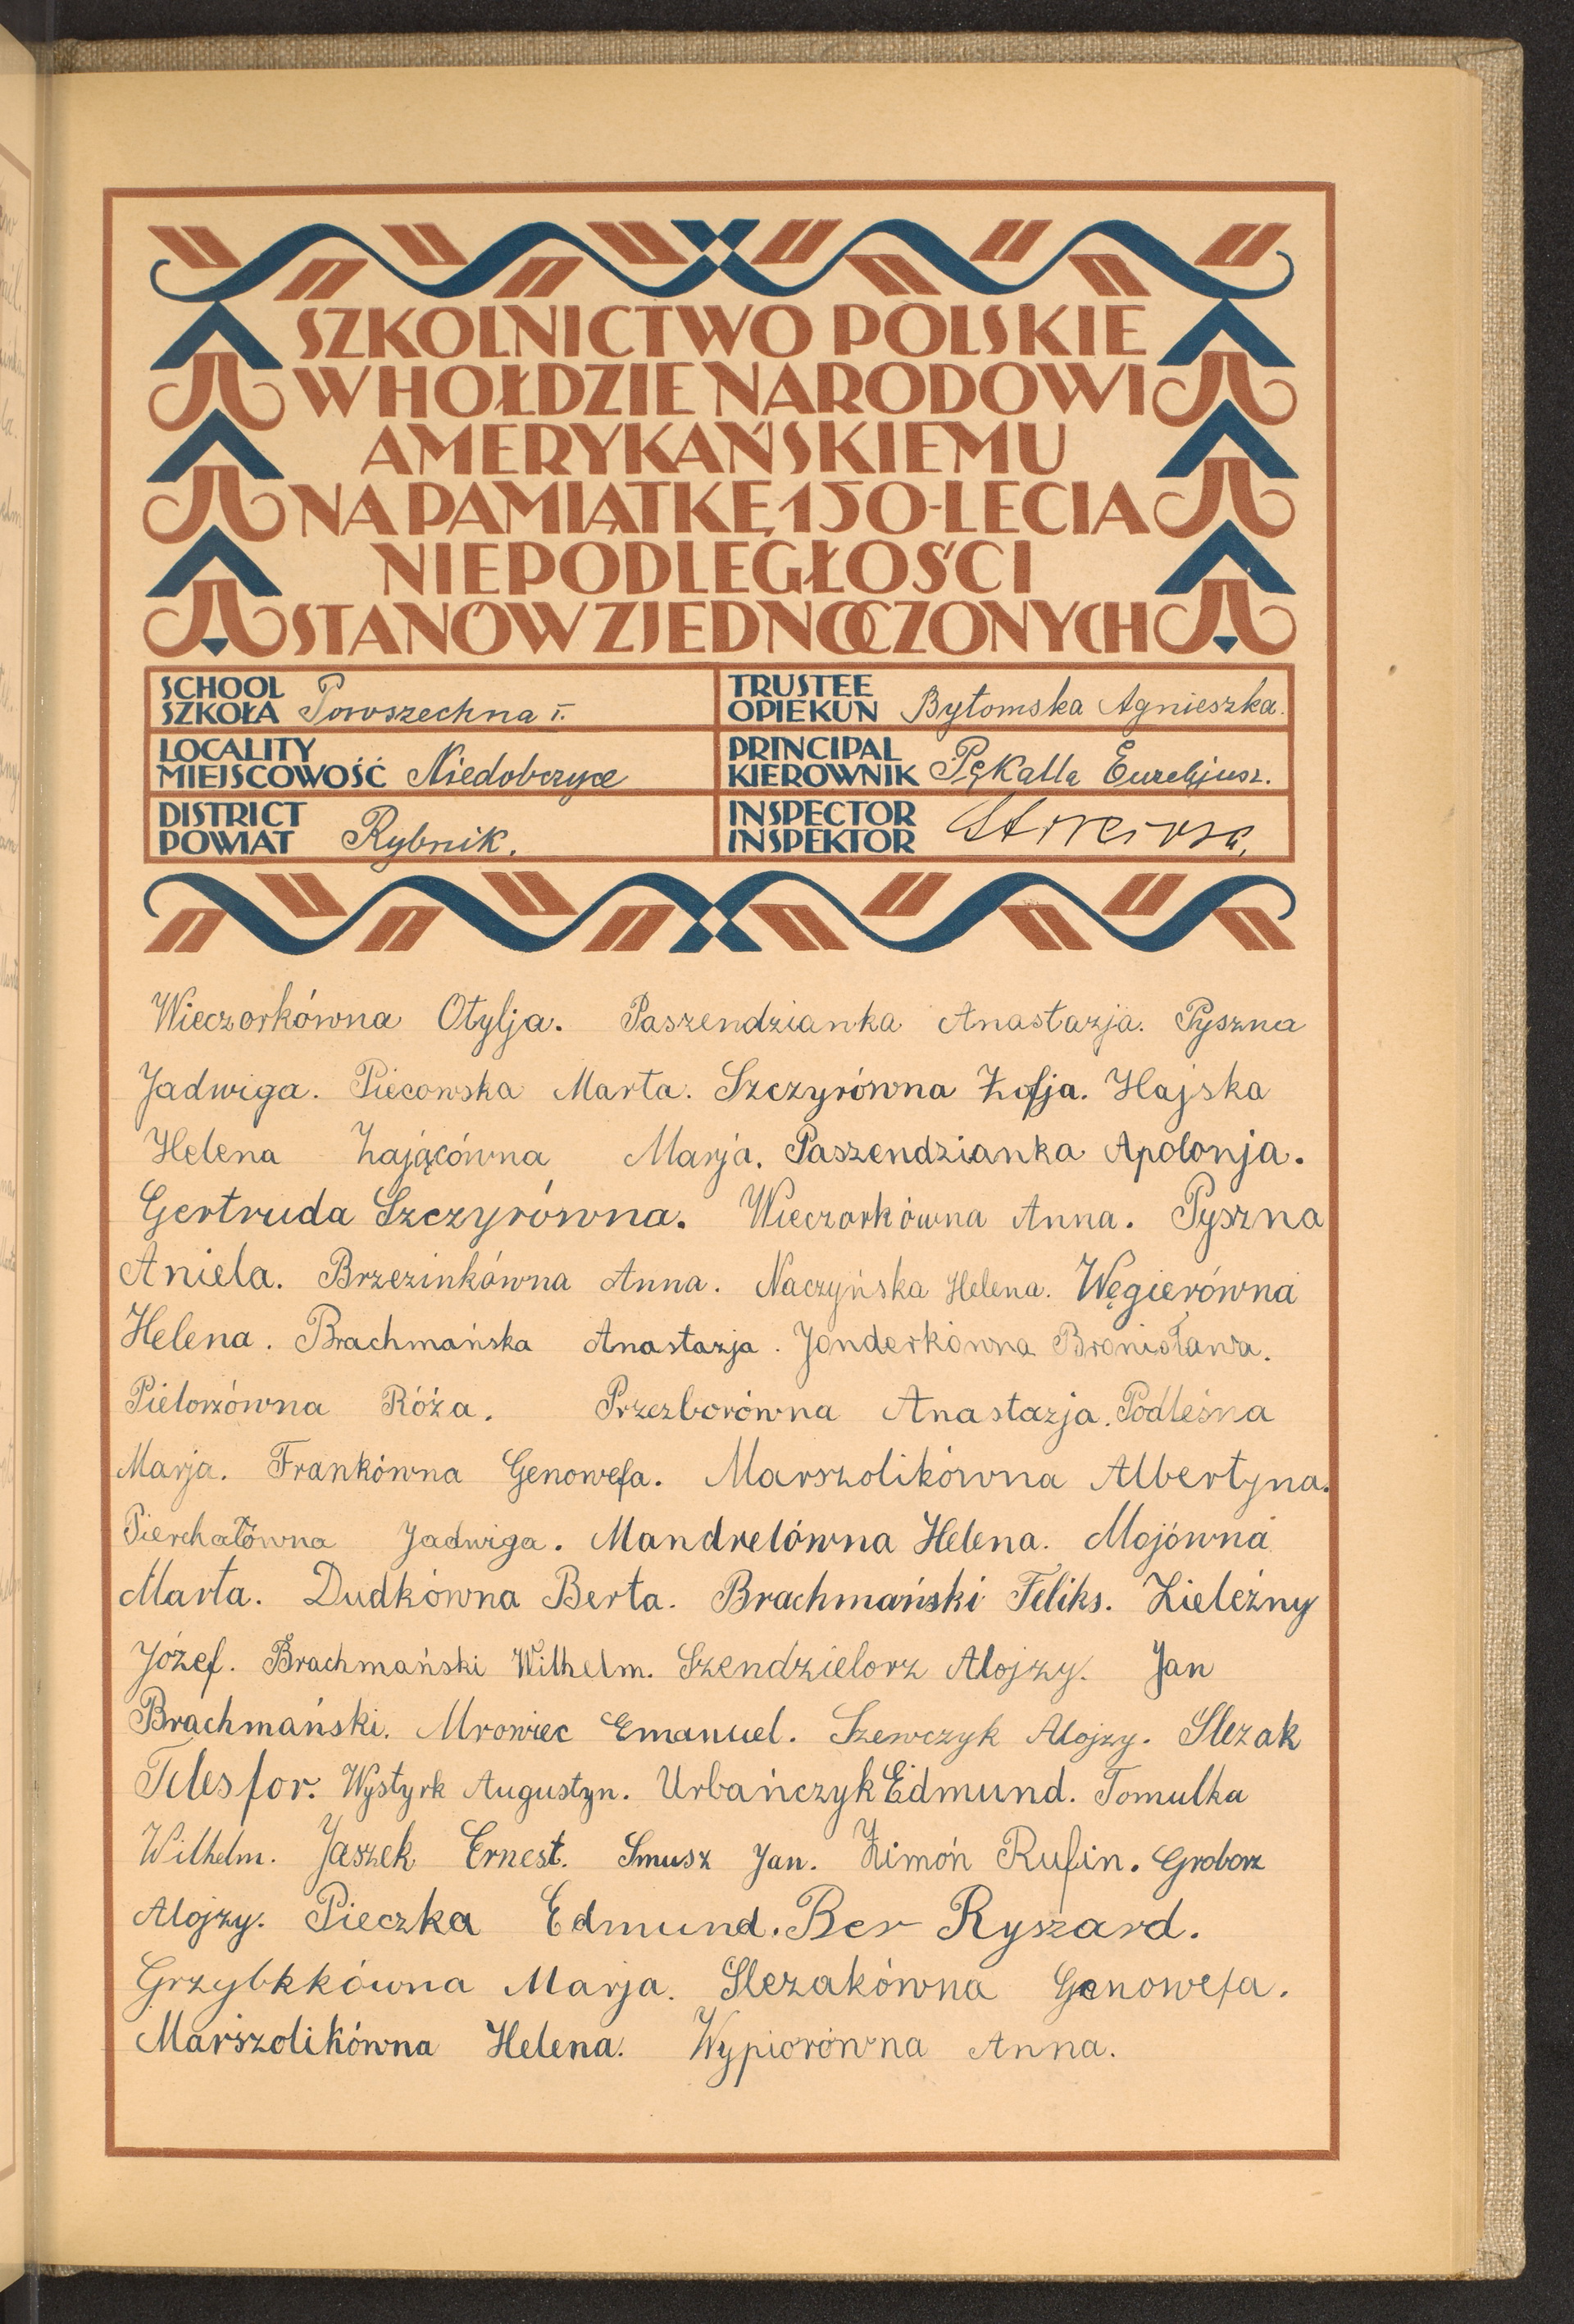 SZKOLNICTWO POLSKIE
W HOŁDZIE NARODOWI
AMERYKAŃSKIEMU
NA PAMIĄTKĘ 150-LECIA
NIEPODLEGŁOŚCI
STANÓW ZJEDNOCZONYCH
SCHOOL
SZKOŁA Powszechna I.
TRUSTEE
OPIEKUN Bytomska Agnieszka.
LOCALITY
MIEJSCOWOŚĆ Niedobczyce
PRINCIPAL
KIEROWNIK Pękalla
DISTRICT
POWIAT Rybnik.
INSPECTOR
INSPEKTOR
Wieczorkówna Otylja. Paszendzianka Anastazja. Pyszna
Jadwiga. Piecowska Marta. Szczyrówna Zofja. Hajska
Helena Zającówna Marja. Paszendzianka Apolonja.
Gertruda Szczyrówna. Wieczorkówna Anna. Pyszna
Aniela. Brzezinkówna Anna. Naczyńska Helena. Węgierówna
Helena. Brachmańska Anastazja. Jonderkówna Bronisława.
Pielorzówna Róża. Przezborówna Anastazja. Podleśna
Marja. Frankówna Genowefa. Marszolikówna Albertyna.
Pierchałówna Jadwiga. Mandrelówna Helena. Mojówna
Marta. Dudkówna Berta. Brachmański Feliks. Zieleźny
Józef. Brachmański Wilhelm. Szendzielorz Alojzy. Jan
Brachmański. Mrowiec Emanuel. Szewczyk Alojzy. Slezak
Telesfor. Wystyrk Augustyn. Urbańczyk Edmund. Tomulka
Wilhelm. Jaszek Ernest. Smusz Jan. Zimóń Rufin. Groborz
Alojzy. Pieczka Edmund. Ber Ryszard.
Grzybkkówna Marja. Slezakówna Genowefa.
Marszolikówna Helena. Wypiorówna Anna.